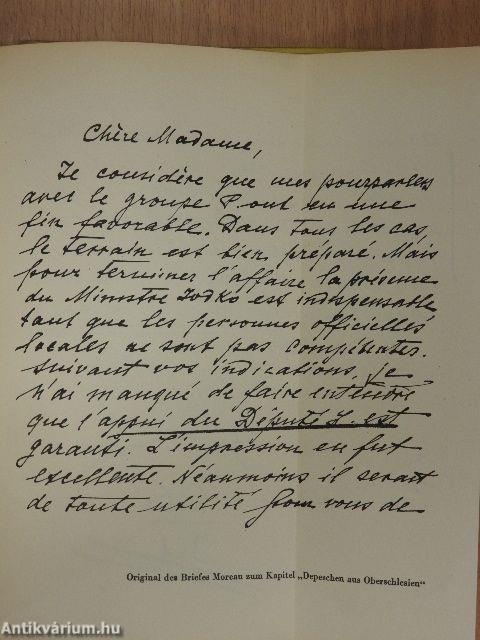 Chère Madame,
Je considère que mes pourparlers
avec le groupe P. ont eu une
fin favorable. Dans tous les cas,
le terrain est bien préparé. Mais
pour terminer l'affaire la présence
du Ministre Jodko est indispensable,
tant que les personnes officielles
locales ne sont pas compétentes.
Suivant vos indications, je
n'ai manqué de faire entendre
que l'appui du Député L. est
garanti. L'impression en fut
excellente. Néanmoins il serait
de toute utilité pour vous de
Original des Briefes Moreau zum Kapitel „Depeschen aus Oberschlesien“
Antikvárium.hu